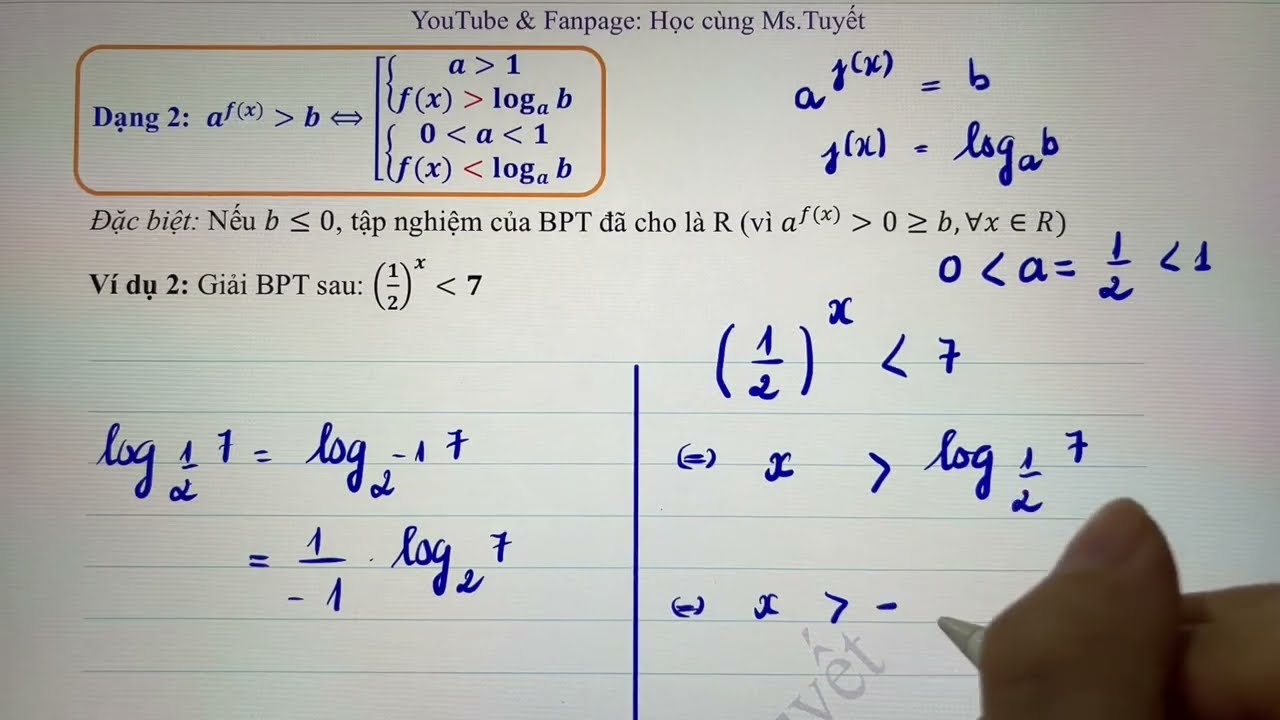 YouTube & Fanpage: Học cùng Ms.Tuyết
Dạng 2: a^{f(x)} > b ⟺ [ { a > 1
f(x) > log_a b
{ 0 < a < 1
f(x) < log_a b
a^{f(x)} = b
f(x) = log_a b
Đặc biệt: Nếu b ≤ 0, tập nghiệm của BPT đã cho là R (vì a^{f(x)} > 0 ≥ b, ∀x ∈ R)
Ví dụ 2: Giải BPT sau: (1/2)^x < 7
0 < a = 1/2 < 1
(1/2)^x < 7
log_{1/2} 7 = log_{2^{-1}} 7
= 1/-1 . log_2 7
⇔ x > log_{1/2} 7
⇔ x > -
yết